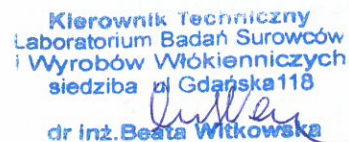 Kierownik Techniczny
Laboratorium Badań Surowców
i Wyrobów Włókienniczych
siedziba ul Gdańska118
dr inż.Beata Witkowska